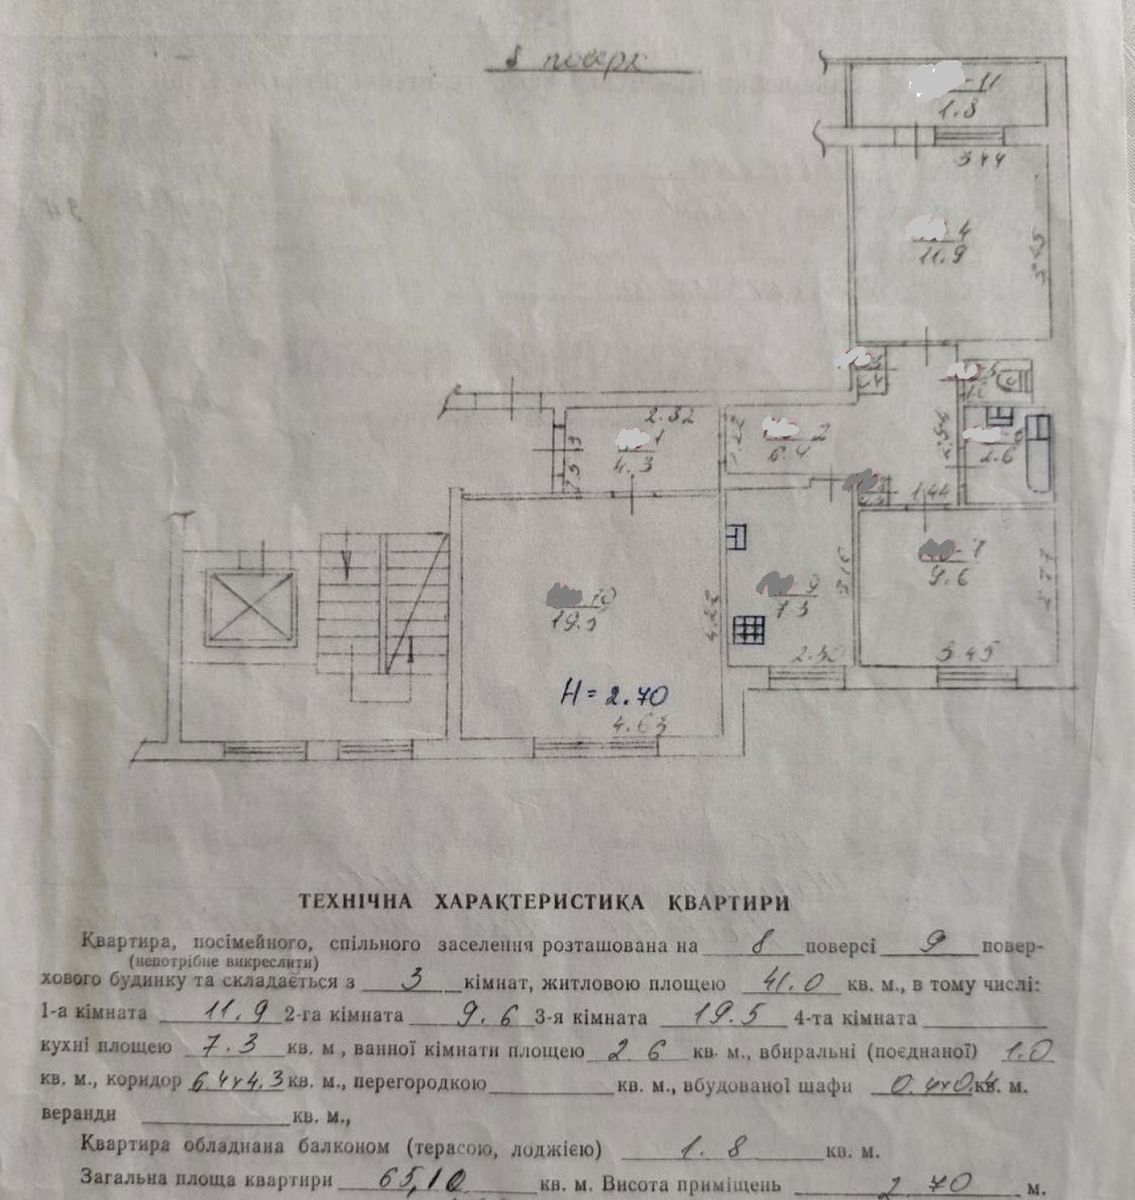 8 поверх
11
1.8
3.44
4
11.9
3.45
5
2.32
1
4.3
2
6.4
2.54
2.6
1.44
7
9.6
2.77
3.45
9
7.3
3.16
2.32
10
19.5
4.22
H = 2.70
4.63
ТЕХНІЧНА ХАРАКТЕРИСТИКА КВАРТИРИ
Квартира, посімейного, спільного заселення розташована на 8 поверсі 9 повер-
(непотрібне викреслити)
хового будинку та складається з 3 кімнат, житловою площею 41.0 кв. м., в тому числі:
1-а кімната 11.9 2-га кімната 9.6 3-я кімната 19.5 4-та кімната
кухні площею 7.3 кв. м, ванної кімнати площею 2.6 кв. м., вбиральні (поєднаної) 1.0
кв. м., коридор 6.4 + 4.3 кв. м., перегородкою кв. м., вбудованої шафи 0.4 + 0.4 кв. м.
веранди кв. м.,
Квартира обладнана балконом (терасою, лоджією) 1.8 кв. м.
Загальна площа квартири 65,10 кв. м. Висота приміщень 2.70 м.